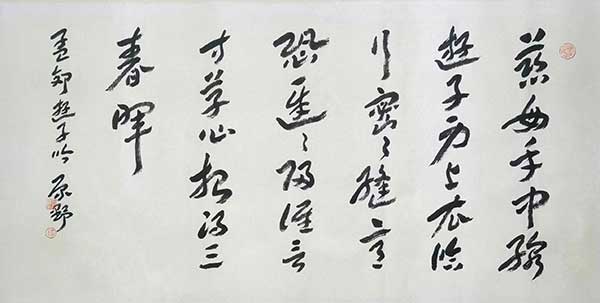 慈母手中線
遊子身上衣臨
行密〻縫意
恐遲〻歸誰言
寸草心報得三
春暉
孟郊遊子吟 原野